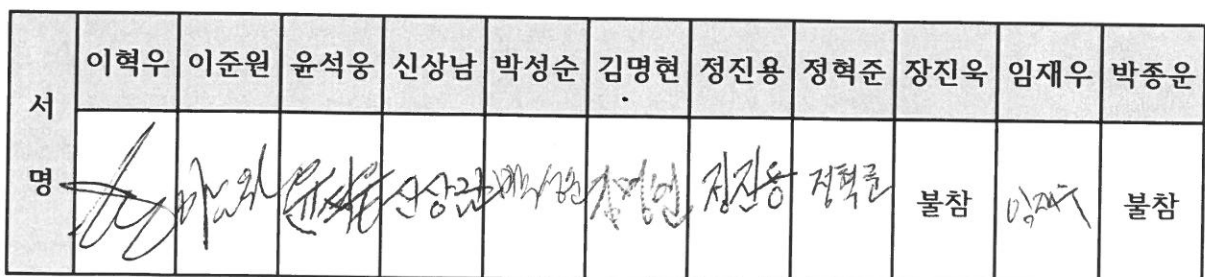 서명 이혁우 이준원 윤석웅 신상남 박성순 김명현 정진용 정혁준 장진욱 임재우 박종운
정진용 정혁준 불참 임재우 불참